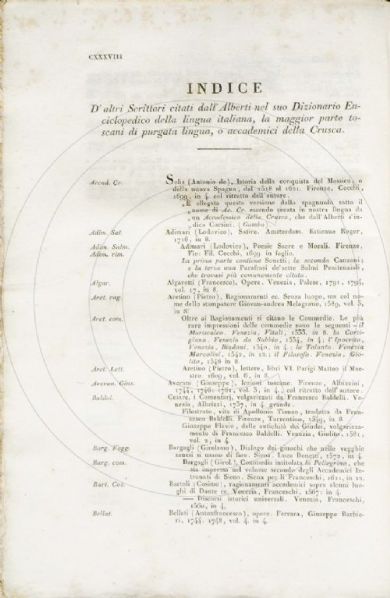 CXXXVIII
INDICE
D'altri Scrittori citati dall'Alberti nel suo Dizionario En-
ciclopedico della lingua italiana, la maggior parte to-
scani di purgata lingua, o accademici della Crusca.
Accad. Cr. Solis (Antonio de), Istoria della conquista del Messico, o
della nuova Spagna, dal 1518 al 1621. Firenze, Cecchi,
1699, in 4. col ritratto dell'autore.
allegata questa versione dalla spagnuola sotto il
nome di Ac. Cr. essendo recata in nostra lingua da
un Accademico della Crusca, che dall'Alberti s'in-
dica Corsini. (Gamba)
Adim. Sat. Adimari (Lodovico), Satire. Amsterdam. Estienne Roger,
1716, in 8.
Adim. Salm. Adimari (Lodovico), Poesie Sacre e Morali. Firenze,
Adim. rim. Vic: Fil. Cecchi, 1699 in foglio.
La prima parte contiene Sonetti; la seconda Canzoni;
e la terza una Parafrasi de' sette Salmi Penitenziali,
che trovasi più comunemente citata.
Algar. Algarotti (Francesco), Opere. Venezia, Palese, 1791, 1795,
vol. 17, in 8.
Aret. rag. Aretino (Pietro), Ragionamenti ec. Senza luogo, ma col no-
me dello stampatore Giovan-andrea Melagrano, 1589, vol. 3,
in 8.
Aret. com. Oltre ai Ragionamenti si citano le Commedie. Le più
rare impressioni delle commedie sono le seguenti = il
Mariscalco. Venezia, Vitali, 1533, in 8. la Corti-
giana. Venezia da Sabbio, 1534, in 4; l'Ipocrito,
Venezia, Bindoni, 1540, in 4; la Talanta. Venezia
Marcolini, 1542, in 12; il Filosofo. Venezia, Gio-
lito, 1546 in 8.
Aret. Lett. Aretino (Pietro), lettere, libri VI. Parigi Matteo il Mae-
stro. 1609, vol. 6, in 8.
Averan. Gius. Averani (Giuseppe), lezioni toscane. Firenze, Albizzini,
1744, 1746, 1761, vol. 3, in 4., col ritratto dell'autore
Baldel. Cesare, i Comentari, volgarizzati da Francesco Baldelli. Ve-
nezia, Albrizzi, 1737, in 4. grande.
Filostrato, vita di Apollonio Tianeo, tradotta da Fran-
cesco Baldelli. Firenze, Torrentino, 1549, in 8.
Giuseppe Flavio, delle antichità dei Giudei, volgarizza-
mento di Francesco Baldelli. Venezia, Giolito, 1581,
vol. 2, in 4.
Barg. Vegg. Bargagli (Girolamo), Dialogo dei giuochi che nelle vegghie
sanesi si usano di fare. Siena, Luca Bonetti, 1572, in 4.
Barg. com. Bargagli (Girol.), Commedia intitolata la Pellegrina, che
sta impressa nel volume secondo degli Accademici In-
tronati di Siena. Siena per li Franceschi, 1611, in 12.
Bart. Cos. Bartoli (Cosimo), ragionamenti accademici sopra alcuni luo-
ghi di Dante ec. Venezia, Franceschi, 1567; in 4.
— Discorsi istorici universali. Venezia, Franceschi,
1569, in 4.
Bellat. Bellati (Antonfrancesco), opere. Ferrara, Giuseppe Barbie-
ri, 1744. 1748, vol. 4. in 4.